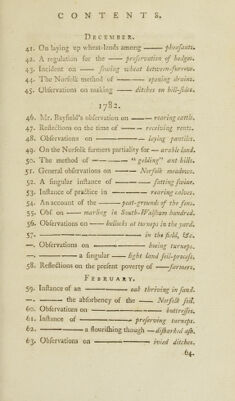 CONTENTS.
DECEMBER.
41. On laying up wheat-lands among —— pheasants.
42. A regulation for the —— preservation of hedges.
43. Incident on —— sowing wheat between-furrow.
44. The Norfolk method of —— opening drains.
45. Observations on making —— ditches on hill-sides.
1782.
46. Mr. Bayfield's observation on —— rearing cattle.
47. Reflections on the time of —— receiving rents.
48. Observations on —— laying pantiles.
49. On the Norfolk farmers partiality for — arable land.
50. The method of —— "gelding" ant hills.
51. General observations on —— Norfolk meadows.
52. A singular instance of —— fatting swine.
53. Instance of practice in —— rearing calves.
54. An account of the —— peat-grounds of the fens.
55. Obs. on —— marling in South-Walsham hundred.
56. Observations on —— bullocks at turneps in the yard.
57. —— in the field, &c.
—. Observations on —— hoeing turneps.
—. —— a singular — light land soil-process.
58. Reflections on the present poverty of —— farmers.
FEBRUARY.
59. Instance of an —— oak thriving in sand.
—. —— the absorbency of the — Norfolk soil.
60. Observations on —— buttresses.
61. Instance of —— preserving turneps.
62. —— a flourishing though — disbarked ash.
63. Observations on —— ivied ditches.
64.